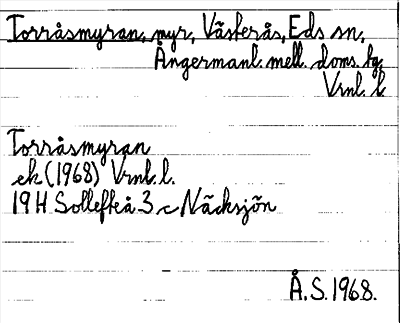 Torråsmyran, myr, Västerås, Eds sn,
Ångermanl. mell. doms. tg,
Vrnl. l
Torråsmyran
ek (1968) Vrnl. l.
19 H Sollefteå 3 c Näcksjön
Å. S. 1968.